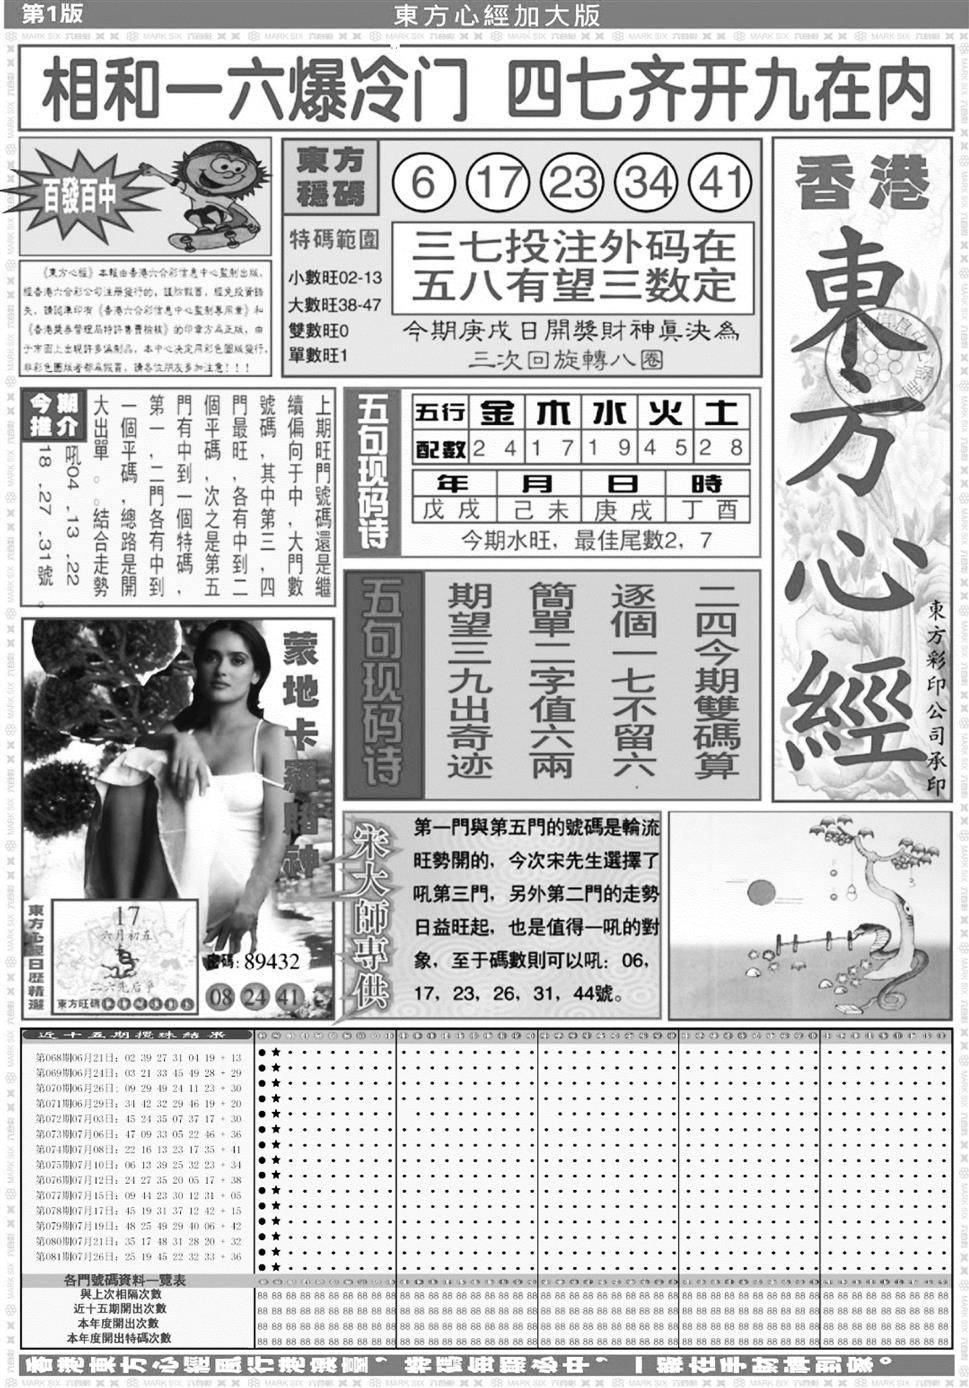 第1版
東方心經加大版
相和一六爆冷门 四七齐开九在内
百發百中
東方穩碼
6 17 23 34 41
特碼範圍
小數旺02-13
大數旺38-47
雙數旺0
單數旺1
三七投注外码在
五八有望三数定
今期庚戌日開獎財神眞決為
三次回旋轉八圈
香港
東方心經
東方彩印公司承印
《東方心經》本報由香港六合彩信息中心監制出版，
經香港六合彩公司注册發行的，謹防假冒，經免投資錯
失，請認準印有《香港六合彩信息中心監制專用章》和
《香港獎券管理局特許專賣檢核》的印章方爲正版，由
于市面上出現許多僞制品，本中心决定用彩色圖版發行，
非彩色圖版者都爲假冒，請各位朋友多加注意！！！
今期推介
上期旺門號碼還是繼
續偏向于中，大門數
號碼，其中第三，四
門最旺，各有中到二
個平碼，次之是第五
門有中到一個特碼，
第一，二門各有中到
一個平碼，總路是開
大出單。。結合走勢
吼04，13，22
18，27，31號。
五句现码诗
五行 金 木 水 火 土
配數 2 4 1 7 1 9 4 5 2 8
年 月 日 時
戊戌 己未 庚戌 丁酉
今期水旺，最佳尾數2，7
五句现码诗
二四今期雙碼算
逐個一七不留六
簡單二字值六兩
期望三九出奇迹
蒙地卡羅賭神
東方心經日歷精選
17
六月初五
二六先后爭
東方旺碼
密碼：89432
08 24 41
宋大師專供
第一門與第五門的號碼是輪流
旺勢開的，今次宋先生選擇了
吼第三門，另外第二門的走勢
日益旺起，也是值得一吼的對
象，至于碼數則可以吼：06，
17，23，26，31，44號。
近十五期攪珠結果
第068期06月21日：02 39 27 31 04 19 + 13
第069期06月24日：03 21 33 45 49 28 + 29
第070期06月26日：09 29 49 24 11 23 + 30
第071期06月29日：34 42 32 29 46 19 + 20
第072期07月03日：45 24 35 07 37 17 + 30
第073期07月06日：47 09 33 05 22 46 + 36
第074期07月08日：22 16 13 23 17 35 + 41
第075期07月10日：06 13 39 25 32 23 + 34
第076期07月12日：24 27 35 20 05 17 + 38
第077期07月15日：09 44 23 30 12 31 + 05
第078期07月17日：45 19 31 37 12 42 + 15
第079期07月19日：48 25 49 29 40 06 + 42
第080期07月21日：35 17 48 31 28 20 + 32
第081期07月26日：25 19 45 22 32 33 + 36
各門號碼資料一覽表
與上次相隔次數
近十五期開出次數
本年度開出次數
本年度開出特碼次數
香港東方心經風行港澳臺，特碼每期必中，一版在手財神到家。